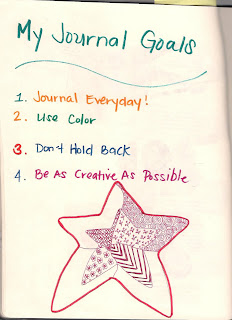 My Journal Goals
1. Journal Everyday!
2. Use Color
3. Don't Hold Back
4. Be As Creative As Possible